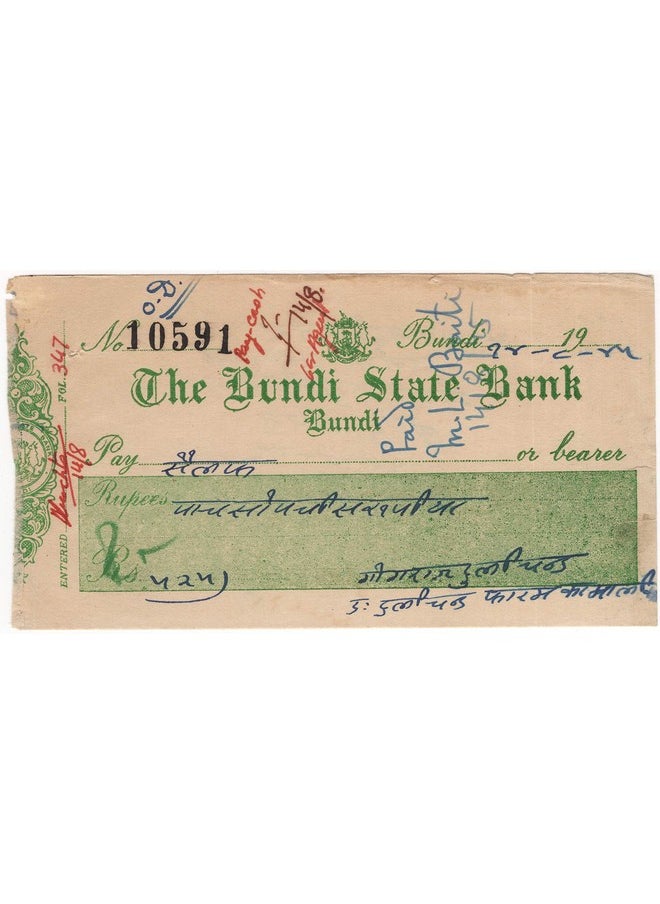 No. 10591
Pay cash
14/8.
Bundi 19
१४-८-४५
The Bundi State Bank
Bundi
Paid
14/8/45
FOL. 347
ENTERED
14/8
Pay सैलाफ or bearer
Rupees पाचसोपचीसरुपीया
Rs. ५२५)
गोगराज दुलीचन्द
द: दुलीचन्द फारम